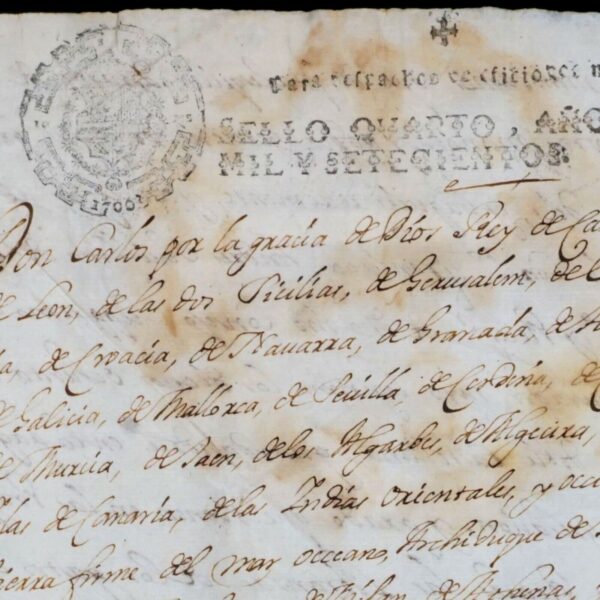 Para despachos de oficio dos m
SELLO QUARTO, AÑO
MIL Y SETECIENTOS.
1700
Don Carlos por la gracia de Dios Rey de Ca
de Leon, de las dos Sicilias, de Gerusalem, de
a, de Croacia, de Navarra, de Granada, de
de Galicia, de Mallorca, de Sevilla de Cerdeña, de C
de Murcia, de Jaen, de los Algarbes, de Algecira,
Islas de Canaria, de las Indias orientales, y occi
tierra firme del mar occeano, Archiduque de
de Milan, de Athenas, y